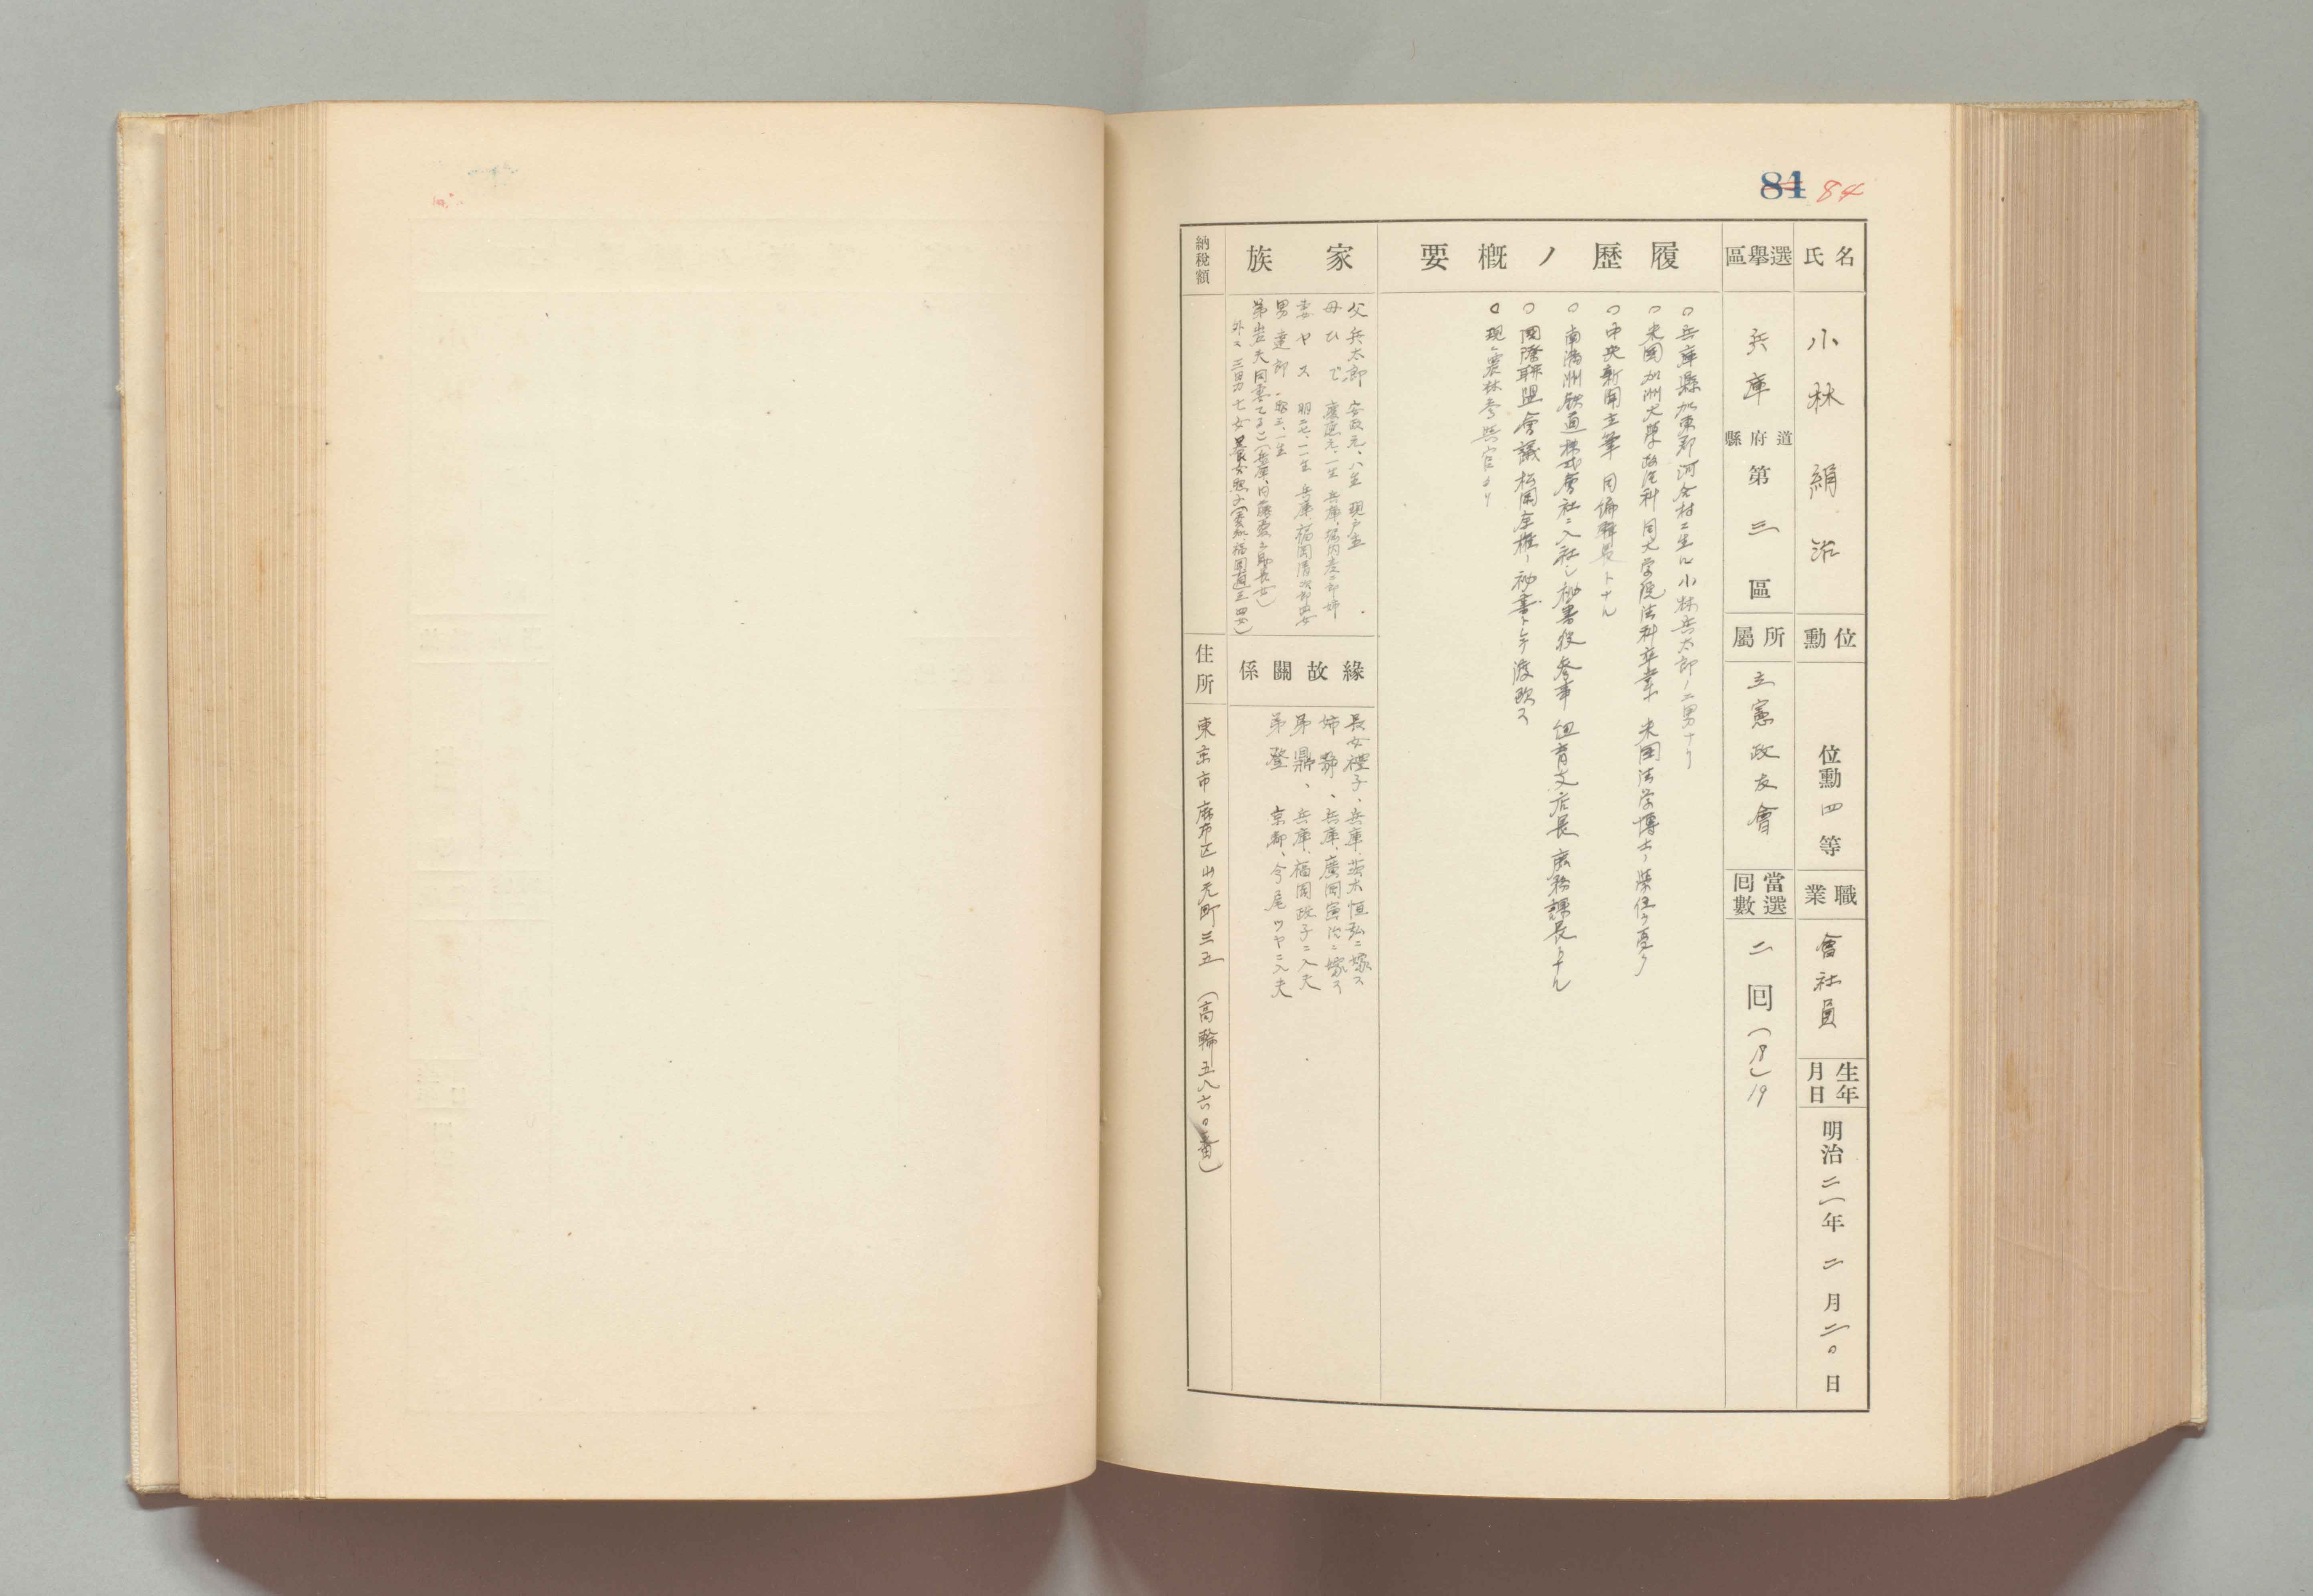 84 84
氏名
小林絹治
位勲
位勲四等
職業
會社員
生年月日
明治二一年二月二〇日
選擧區
兵庫 道府縣 第三區
所屬
立憲政友會
當選回數
二回（18）19
履歷ノ概要
○兵庫縣加東郡河合村ニ生ル小林兵太郎ノ二男ナリ
○米國加洲大學政治科同大学院法科卒業 米國法学博士ノ學位ヲ享ク
○中央新聞主筆 同編輯長トナル
○南滿洲鉄道株式會社ニ入社シ秘書役参事 紐育支店長 庶務課長トナル
○國際聯盟會議松岡全権ノ秘書トシテ渡欧ス
○現ニ農林参與官タリ
家族
父 兵太郎 安政元、八生 現戸主
母 ひで 慶應元、一生 兵庫、
妻 ヤス 明 一一生 兵庫、福岡清次郎
男 達郎 昭三、一生
弟 岩夫 同妻
外ニ三男七女
緣故關係
長女禮子、兵庫、茨木恒弘ニ嫁ス
姉 静、兵庫、廣岡寅治ニ嫁ス
弟 鼎、兵庫、福岡政子ニ入夫
弟 登 京都、今尾ツヤニ入夫
納稅額
住所
東京市麻布区山元町三五（高輪五八六〇番）